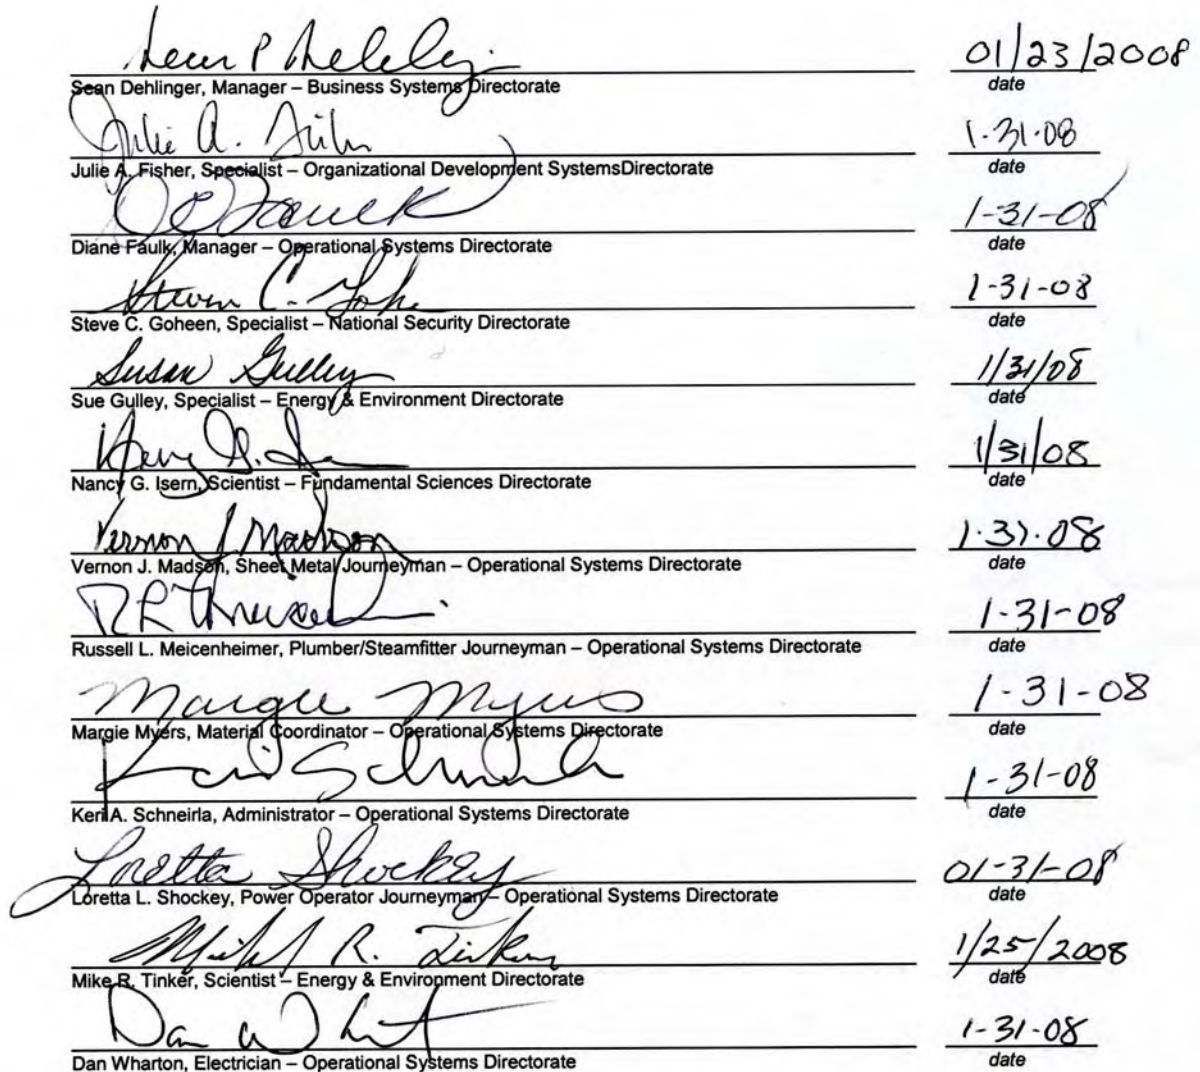 Sean P Dehling 01/23/2008
Sean Dehlinger, Manager – Business Systems Directorate date
Julie A. Fisher 1-31-08
Julie A. Fisher, Specialist – Organizational Development SystemsDirectorate date
D Faulk 1-31-08
Diane Faulk, Manager – Operational Systems Directorate date
Steven C. Goh 1-31-08
Steve C. Goheen, Specialist – National Security Directorate date
Susan Gulley 1/31/08
Sue Gulley, Specialist – Energy & Environment Directorate date
Nancy G. 1/31/08
Nancy G. Isern, Scientist – Fundamental Sciences Directorate date
Vernon J Madson 1-31-08
Vernon J. Madson, Sheet Metal Journeyman – Operational Systems Directorate date
RL 1-31-08
Russell L. Meicenheimer, Plumber/Steamfitter Journeyman – Operational Systems Directorate date
Margie Myers 1-31-08
Margie Myers, Material Coordinator – Operational Systems Directorate date
Keri Schneirla 1-31-08
Keri A. Schneirla, Administrator – Operational Systems Directorate date
Loretta Shockey 01-31-08
Loretta L. Shockey, Power Operator Journeyman – Operational Systems Directorate date
Michael R. Tinker 1/25/2008
Mike R. Tinker, Scientist – Energy & Environment Directorate date
Dan W 1-31-08
Dan Wharton, Electrician – Operational Systems Directorate date